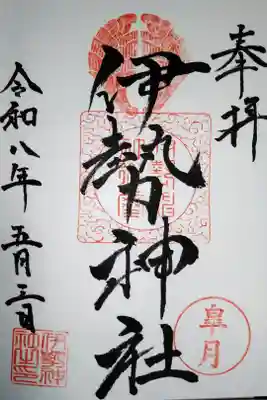 奉拝
伊勢神社
皐月
令和八年 五月三日